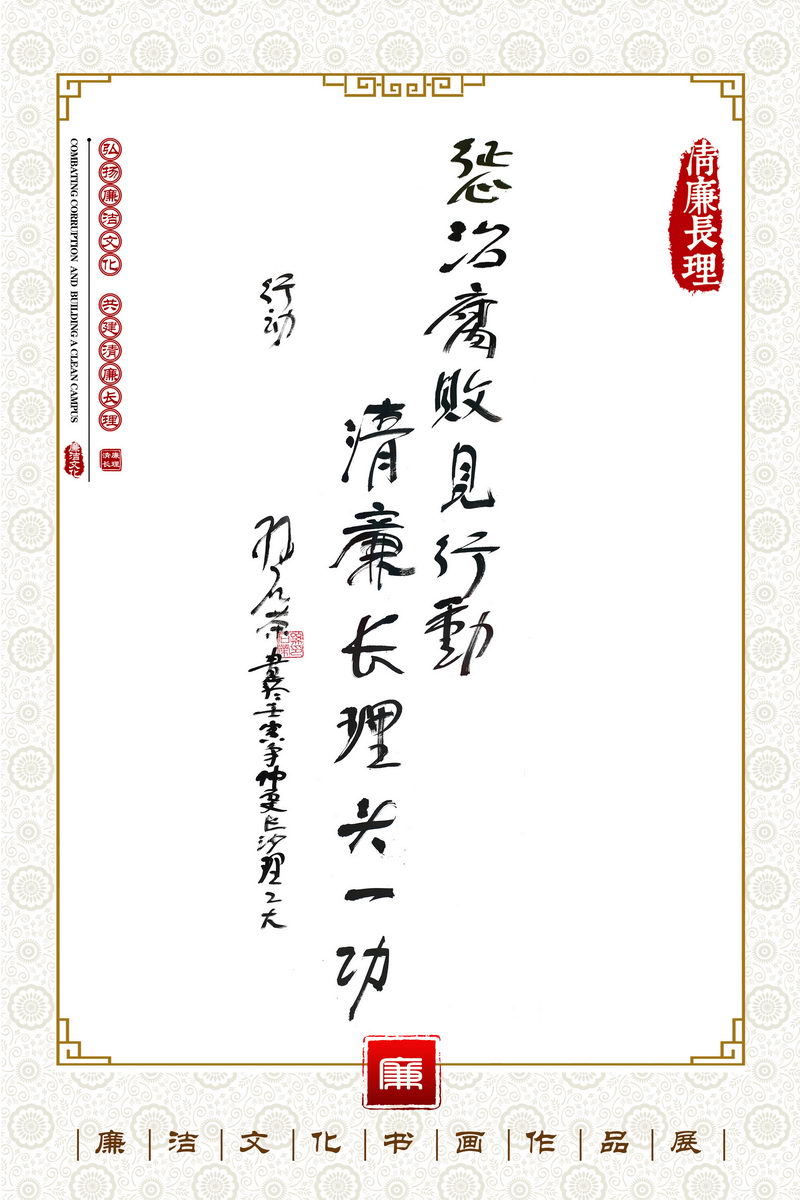 清廉長理
惩治腐敗見行動
清廉长理头一功
行动
書於壬寅年仲夏长沙理工大
弘扬廉洁文化 共建清廉长理
COMBATING CORRUPTION AND BUILDING A CLEAN CAMPUS
廉洁文化
清廉长理
廉
廉洁文化书画作品展